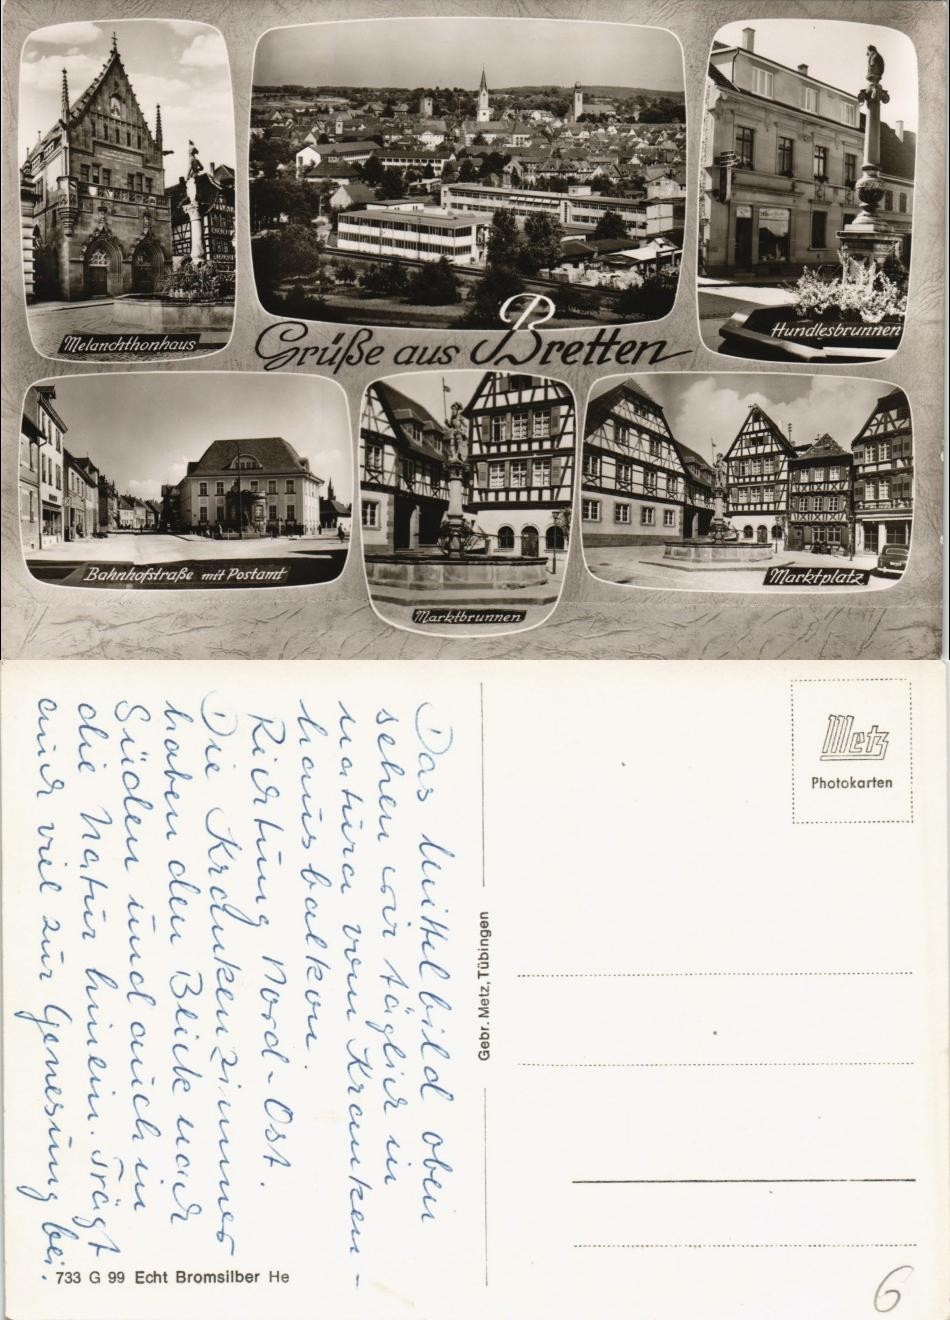 Melanchthonhaus
Hundlesbrunnen
Grüße aus Bretten
Bahnhofstraße mit Postamt
Marktbrunnen
Marktplatz
Das Mittelbild oben
sehen wir täglich in
natura vom Kranken-
hausbalkon.
Richtung Nord-Ost.
Die Krankenzimmer
haben den Blick nach
Süden und auch in
die Natur hinein. Trägt
auch viel zur Genesung bei.
Metz
Photokarten
Gebr. Metz, Tübingen
733 G 99 Echt Bromsilber He
6